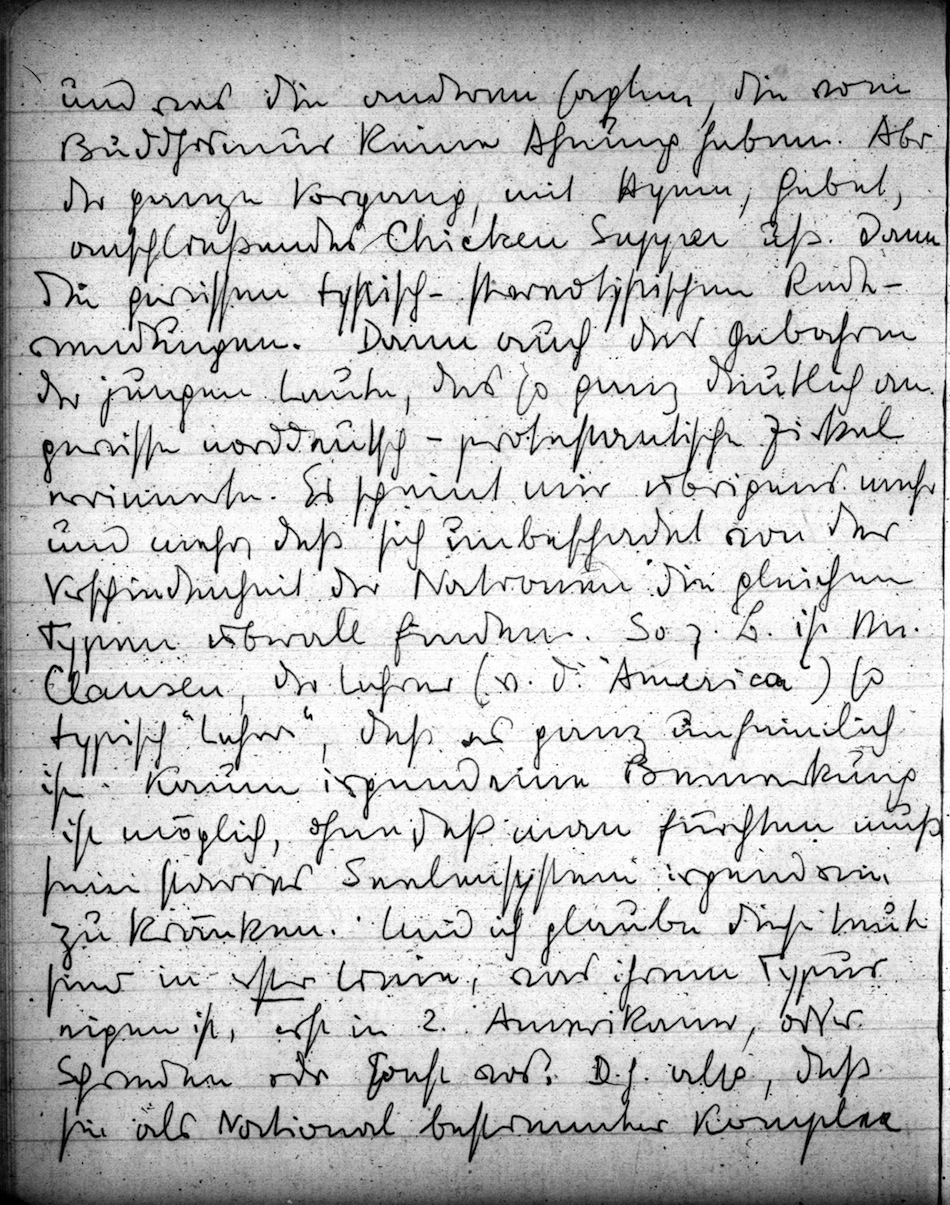 und was die anderen sagten, die vom
Buddhismus keine Ahnung haben. Aber
der ganze Vorgang, mit Hymn, Gebet,
anschließendes Chicken Supper üß. Dann
die gewissen typisch-stereotypischen Rede-
wendungen. Dann auch das Gebahren
der jungen Leute, das so ganz deutlich an
gewisse norddeutsch-protestantische Zirkel
erinnerte. Es scheint mir übrigens mehr
und mehr, daß sich unbeschadet von der
Verschiedenheit der Nationen die gleichen
Typen überall finden. So z. B. ist Mr.
Clausen, der Lehrer (v. d. "America") so
typisch "Lehrer", daß es ganz unheimlich
ist. Kaum irgendeine Bemerkung
ist möglich, ohne daß man fürchten muß
sein starres Seelensystem irgendwie
zu kränken. Und ich glaube diese Leute
sind in erster Linie, was ihrem Typus
eigen ist, erst in 2. Amerikaner, oder
Schweden oder sonst was. D.h. also, daß
sie als National bestimmter Komplex